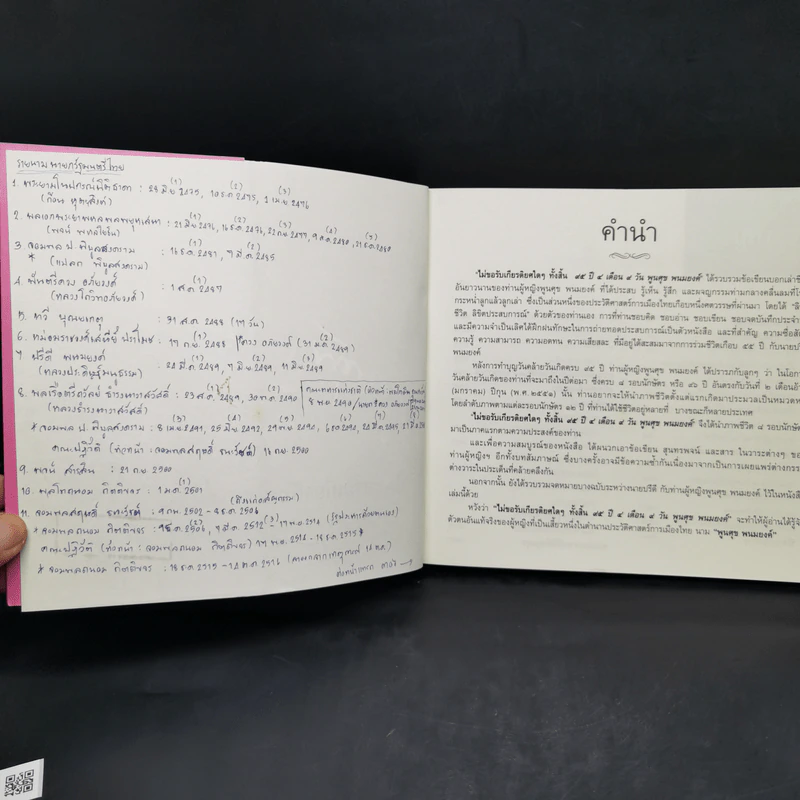 รายนามนายกรัฐมนตรีไทย
1. พระยามโนปกรณ์นิติธาดา : 28 มิย 2475, 10 ธค 2475, 1 เมย 2476
(ก้อน หุตะสิงห์)
2. พลเอกพระยาพหลพลพยุหเสนา : 21 มิย 2476, 16 ธค 2476, 22 กย 2477, 9 สค 2480, 21 ธค 2480
(พจน์ พหลโยธิน)
3. จอมพล ป. พิบูลสงคราม : 16 ธค 2481, 7 มีค 2485
* (แปลก พิบูลสงคราม)
4. พันตรีควง อภัยวงศ์ : 1 สค 2487
(หลวงโกวิทอภัยวงศ์)
5. ทวี บุณยเกตุ : 31 สค 2488 (17 วัน)
6. หม่อมราชวงศ์เสนีย์ ปราโมช : 17 กย 2488 (ควง อภัยวงศ์) (31 มค 2489)
7. ปรีดี พนมยงค์ : 24 มีค 2489, 11 มิย 2489
(หลวงประดิษฐ์มนูธรรม)
8. พลเรือตรีถวัลย์ ธำรงนาวาสวัสดิ์ : 23 สค 2489, 30 พค 2490
(หลวงธำรงนาวาสวัสดิ์)
* จอมพล ป. พิบูลสงคราม : 8 เมย 2491, 25 มิย 2492, 29 พย 2494, 6 ธค 2494, 24 มีค 2495
คณะปฏิวัติ (หัวหน้า : จอมพลสฤษดิ์ ธนะรัชต์) 16 กย 2500
9. พจน์ สารสิน : 21 กย 2500
10. พลโทถนอม กิตติขจร : 1 มค 2501
(ถึงแก่อสัญกรรม)
11. จอมพลสฤษดิ์ ธนะรัชต์ : 9 กพ 2502 - 8 ธค 2506
* จอมพลถนอม กิตติขจร : 9 ธค 2506, 7 มีค 2512 - 17 พย 2514 (รัฐประหารตัวเอง)
คณะปฏิวัติ (หัวหน้า : จอมพลถนอม กิตติขจร) 17 พย 2514 - 18 ธค 2515
* จอมพลถนอม กิตติขจร : 18 ธค 2515 - 14 ตค 2516 (ลาออกจากเหตุการณ์ 14 ตค.)
คำนำ
"ไม่ขอรับเกียรติยศใดๆ ทั้งสิ้น ๙๕ ปี ๔ เดือน ๙ วัน พูนศุข พนมยงค์" ได้รวบรวมข้อเขียนบอกเล่าชี
อันยาวนานของท่านผู้หญิงพูนศุข พนมยงค์ ที่ได้ประสบ รู้เห็น รู้สึก และผจญกรรมท่ามกลางคลื่นลมที่โ
กระหน่ำลูกแล้วลูกเล่า ซึ่งเป็นส่วนหนึ่งของประวัติศาสตร์การเมืองไทยเกือบหนึ่งศตวรรษที่ผ่านมา โดยได้ "ลิ
ชีวิต ลิขิตประสบการณ์" ด้วยตัวของท่านเอง การที่ท่านชอบคิด ชอบอ่าน ชอบเขียน ชอบจดบันทึกประจำ
และมีความจำเป็นเลิศได้ฝึกฝนทักษะในการถ่ายทอดประสบการณ์เป็นตัวหนังสือ และที่สำคัญ ความซื่อสัต
ความรู้ ความสามารถ ความอดทน ความเสียสละ ที่มีอยู่ได้สะสมมาจากการร่วมชีวิตเกือบ ๕๕ ปี กับนายป
พนมยงค์
หลังการทำบุญวันคล้ายวันเกิดครบ ๙๕ ปี ท่านผู้หญิงพูนศุข พนมยงค์ ได้ปรารภกับลูกๆ ว่า ในโอก
วันคล้ายวันเกิดของท่านที่จะมาถึงในปีต่อมา ซึ่งครบ ๘ รอบนักษัตร หรือ ๙๖ ปี อันตรงกับวันที่ ๒ เดือนอ้
(มกราคม) ปีกุน (พ.ศ.๒๕๕๑) นั้น ท่านอยากจะให้นำชีวิตตั้งแต่แรกเกิดมาประมวลเป็นหมวดหม
โดยลำดับภาพตามแต่ละรอบนักษัตร ๑๒ ปี ที่ท่านได้ใช้ชีวิตอยู่หลายที่ บางขณะก็หลายประเทศ
"ไม่ขอรับเกียรติยศใดๆ ทั้งสิ้น ๙๕ ปี ๔ เดือน ๙ วัน พูนศุข พนมยงค์" จึงได้นำภาพชีวิต ๘ รอบนักษั
มาเป็นภาคแรกตามความประสงค์ของท่าน
และเพื่อความสมบูรณ์ของหนังสือ ได้ผนวกเอาข้อเขียน สุนทรพจน์ และสาร ในวาระต่างๆ ขอ
ท่านผู้หญิงฯ อีกทั้งบทสัมภาษณ์ ซึ่งบางครั้งอาจมีข้อความซ้ำกันเนื่องมาจากการเผยแพร่ต่างกรร
ต่างวาระในประเด็นที่คล้ายคลึงกัน
นอกจากนั้น ยังได้รวบรวมจดหมายบางฉบับระหว่างนายปรีดี กับท่านผู้หญิงพูนศุข พนมยงค์ ไว้ในหนังสื
เล่มนี้ด้วย
หวังว่า "ไม่ขอรับเกียรติยศใดๆ ทั้งสิ้น ๙๕ ปี ๔ เดือน ๙ วัน พูนศุข พนมยงค์" จะทำให้ผู้อ่านได้รู้จั
ตัวตนอันแท้จริงของผู้หญิงที่เป็นเสี้ยวหนึ่งในตำนานประวัติศาสตร์การเมืองไทย นาม "พูนศุข พนมยงค์"